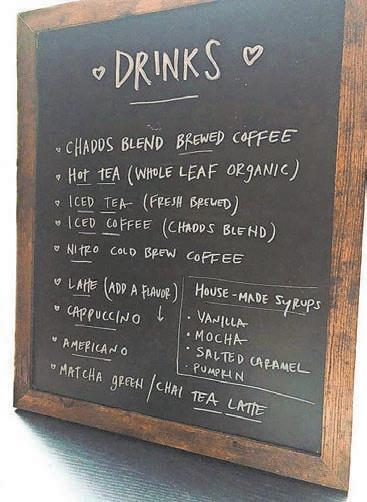 DRINKS
CHADDS BLEND BREWED COFFEE
HOT TEA (WHOLE LEAF ORGANIC)
ICED TEA (FRESH BREWED)
ICED COFFEE (CHADDS BLEND)
NITRO COLD BREW COFFEE
LATTE (ADD A FLAVOR)
CAPPUCCINO
AMERICANO
MATCHA GREEN / CHAI TEA LATTE
HOUSE-MADE SYRUPS
• VANILLA
• MOCHA
• SALTED CARAMEL
• PUMPKIN